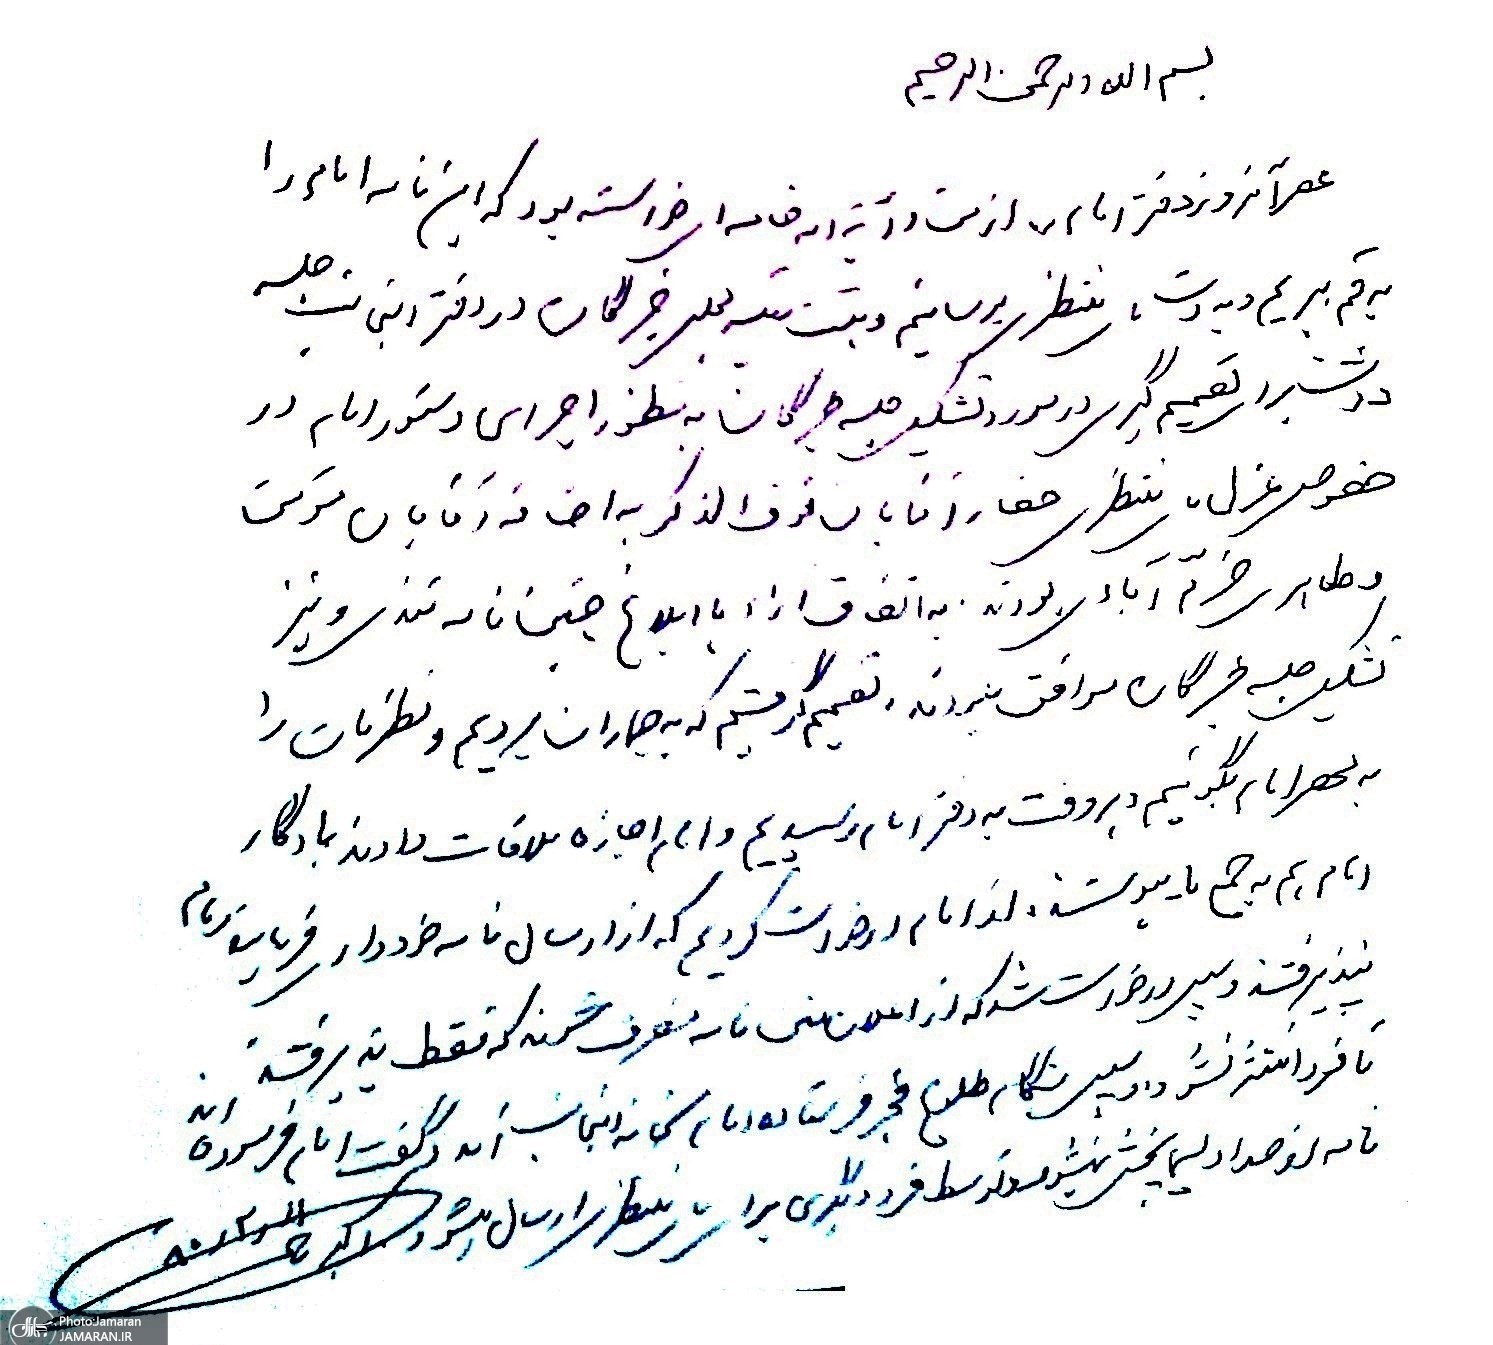 بسم الله الرحمن الرحیم
عصر آنروز دفتر امام، از من و آیة الله خامنه ای خواسته بود که این نامه امام را
به قم ببریم و به دست آ. منتظری برسانیم و هیئت رئیسه مجلس خبرگان در دفتر اینجانب جلسه
داشت برای تصمیم گیری در مورد تشکیل جلسه خبرگان به منظور اجرای دستور امام در
خصوص عزل آ. منتظری حضار آقایان فوق الذکر به اضافه آقایان مؤمن
و طاهری خرّم آبادی بودند. به اتفاق آراء با ابلاغ چنین نامه تندی و نیز
تشکیل جلسه خبرگان موافق نبودند، تصمیم گرفتیم که به جماران برویم و نظرمان را
به محضر امام بگوئیم دیر وقت به دفتر امام رسیدیم و امام اجازه ملاقات دادند یادگار
امام هم به جمع ما پیوستند. از امام درخواست کردیم که از ارسال نامه خودداری فرمایند امام
نپذیرفتند و سپس درخواست شد که از اعلان متن نامه منصرف شوند که فقط پذیرفتند
تا فردا منتشر نشود و سپس هنگام طلوع فجر فرستاده امام به خانه اینجانب آمد و گفت امام فرموده اند
نامه از صدا و سیما پخش نمیشود و توسط فرد دیگری برای آ. منتظری ارسال میشود. اکبر هاشمی
Photo:Jamaran
JAMARAN.IR